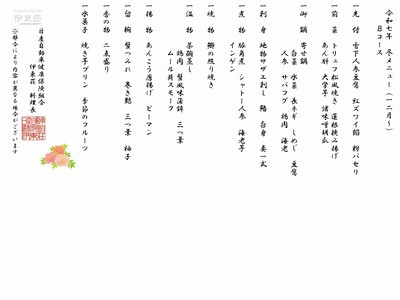 令和七年 冬メニュー(一二月~)
Bコース
一先付 雪下人参豆腐 紅ズワイ餡 粉パセリ
一前菜 トリュフ松風焼き 蓮根挟み揚げ
あん肝 大学芋 諸味噌胡瓜
一御鍋 寄せ鍋
白菜 水菜 長ネギ しめじ 豆腐
人参 サバフグ 鶏肉 海老
一刺身 地物サザエ刺し 鮪 白身 妻一式
一煮物 豚角煮 シャトー人参 海老芋
インゲン
一焼物 鰤の照り焼き
一温物 茶碗蒸し
鶏肉 蟹風味蒲鉾 三つ葉
ムール貝エスモーク
一揚物 あんこう唐揚げ ピーマン
一留椀 蟹つみれ 巻き麩 三つ葉 柚子
一香の物 二点盛り
一水菓子 焼き芋プリン 季節のフルーツ
日産自動車健康保険組合
伊東荘 料理長
※都合により内容が異なる場合がございます
伊東荘